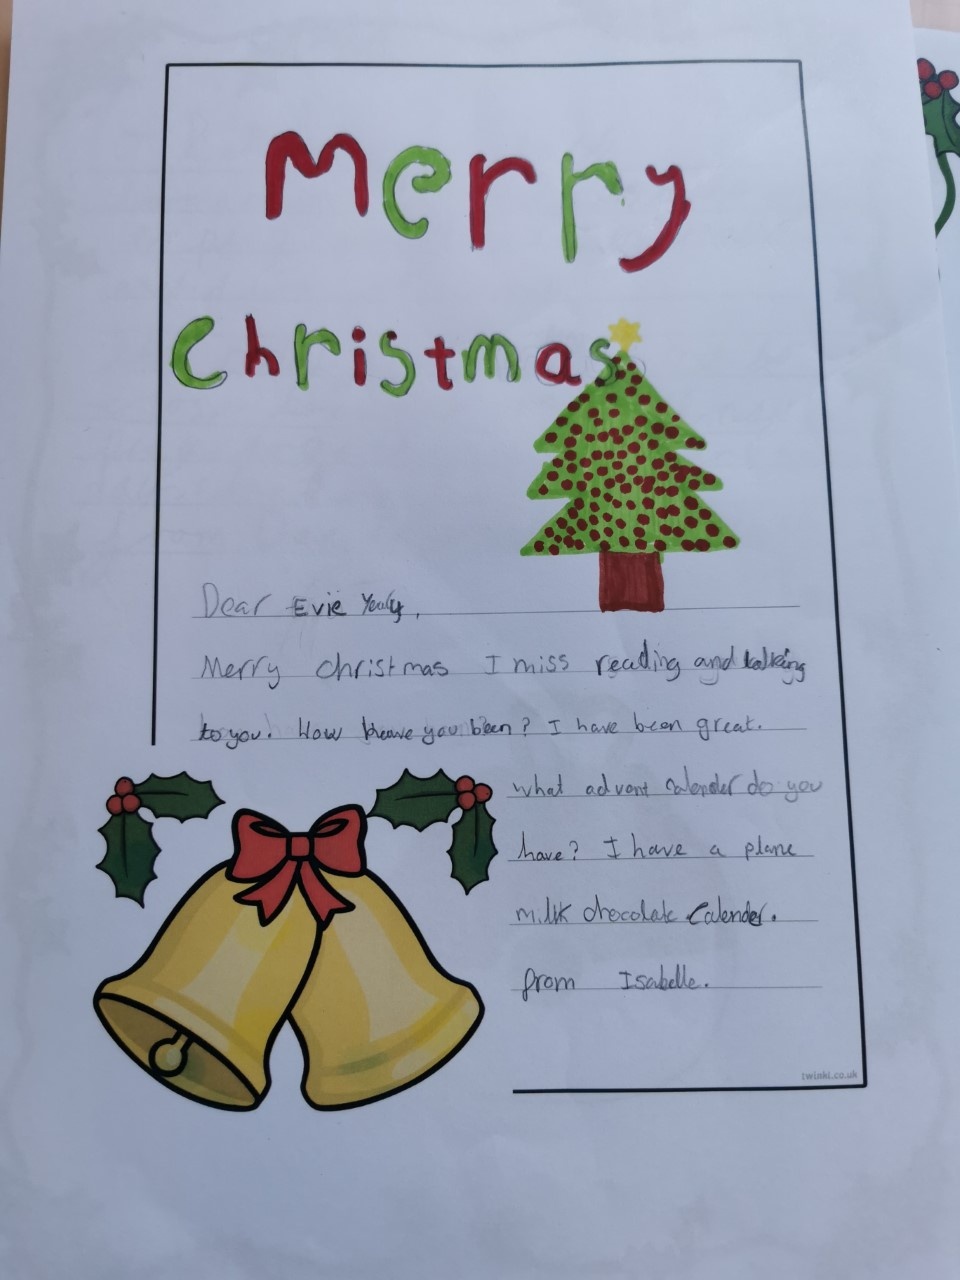 Merry
christmas
Dear Evie
Merry christmas I miss reading and talking
to you. How have you been? I have been great.
what advent calender do you
have? I have a plane
milk chocolate Calender.
from Isabelle.
twinkl.co.uk